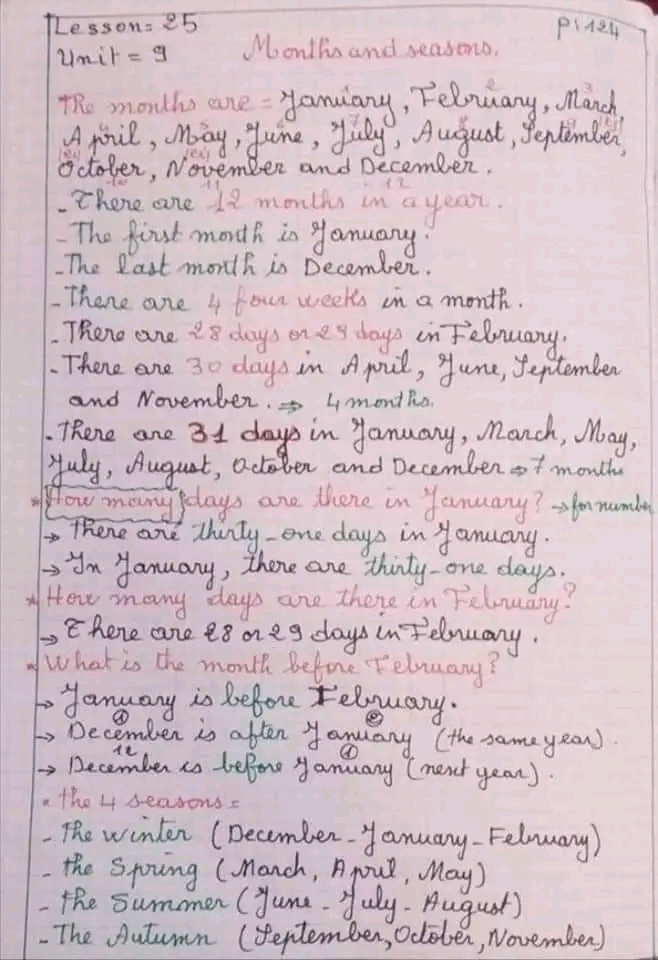 Lesson = 25
p: 124
Unit = 9
Months and seasons.
The months are = January, February, March,
April, May, June, July, August, September,
October, November and December.
- There are 12 months in a year.
- The first month is January.
- The last month is December.
- There are 4 four weeks in a month.
- There are 28 days or 29 days in February.
- There are 30 days in April, June, September
and November. ⇒ 4 months.
- There are 31 days in January, March, May,
July, August, October and December ⇒ 7 months
* How many days are there in January? → for number
→ There are thirty-one days in January.
→ In January, there are thirty-one days.
* How many days are there in February?
→ There are 28 or 29 days in February.
* What is the month before February?
→ January is before February.
→ December is after January (the same year).
→ December is before January (next year).
* the 4 seasons =
- The winter (December - January - February)
- the Spring (March, April, May)
- the Summer (June - July - August)
- The Autumn (September, October, November)